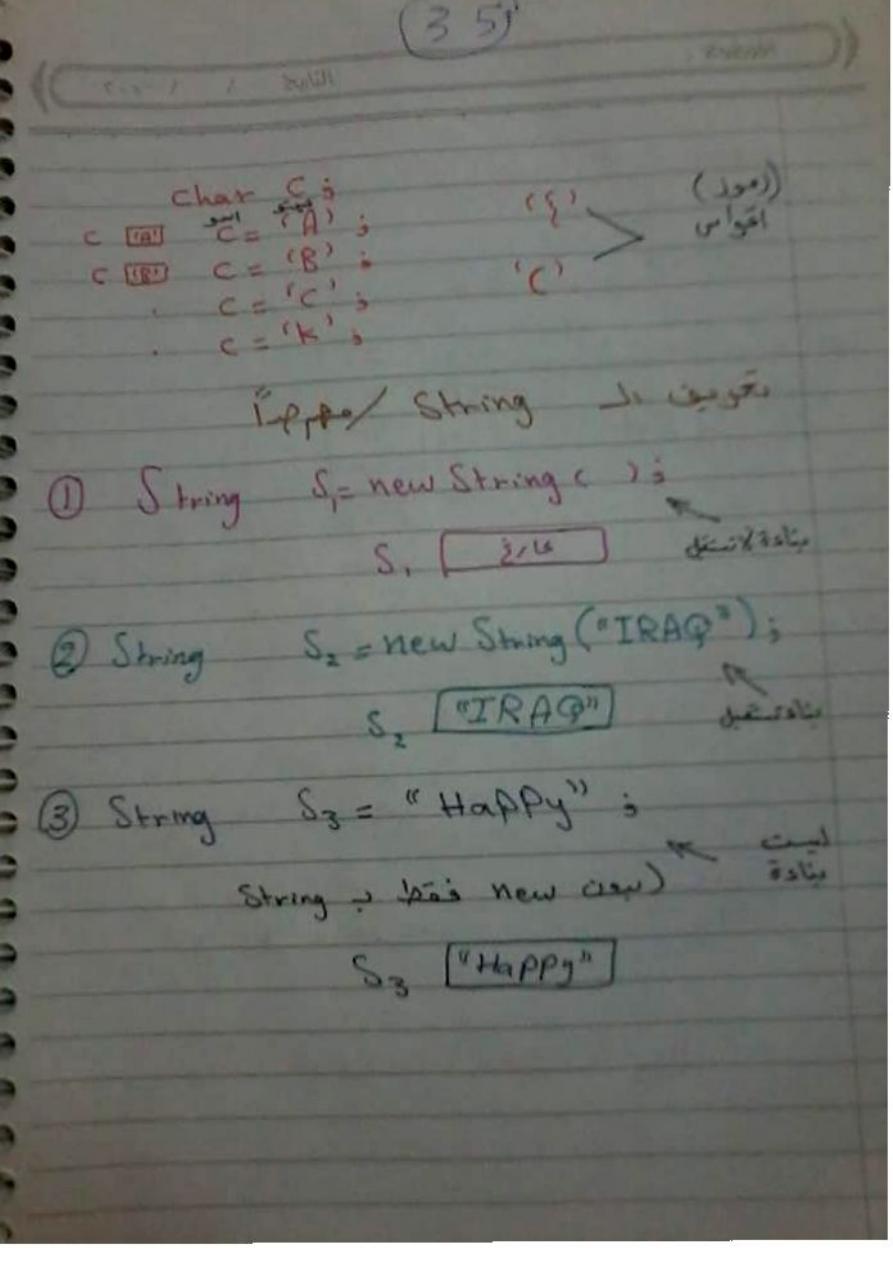 35
التاريخ / / ٢٠٠
char C ;
C 'A' C = 'A' ; '{' (رموز)
C 'B' C = 'B' ; اقواس
C = 'C' ; '('
C = 'K' ;
تعريف الـ String / مهم جداً
① String S1 = new String ( ) ;
S1 فارغ بناءة لا تستقبل
② String S2 = new String ("IRAQ") ;
S2 "IRAQ" بناءة تستقبل
③ String S3 = "Happy" ;
ليست بناءة
(بدون new فقط بـ String
S3 "Happy"